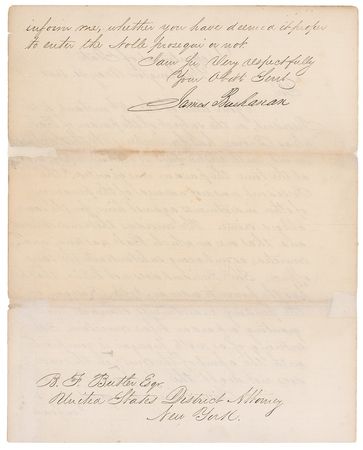 inform me, whether you have deemed it proper
to enter the Nolle prosequi or not
I am Sir Very respectfully
Your Obdt Servt
James Buchanan
B. F Butler Esqr
United States District Attorney
New York.